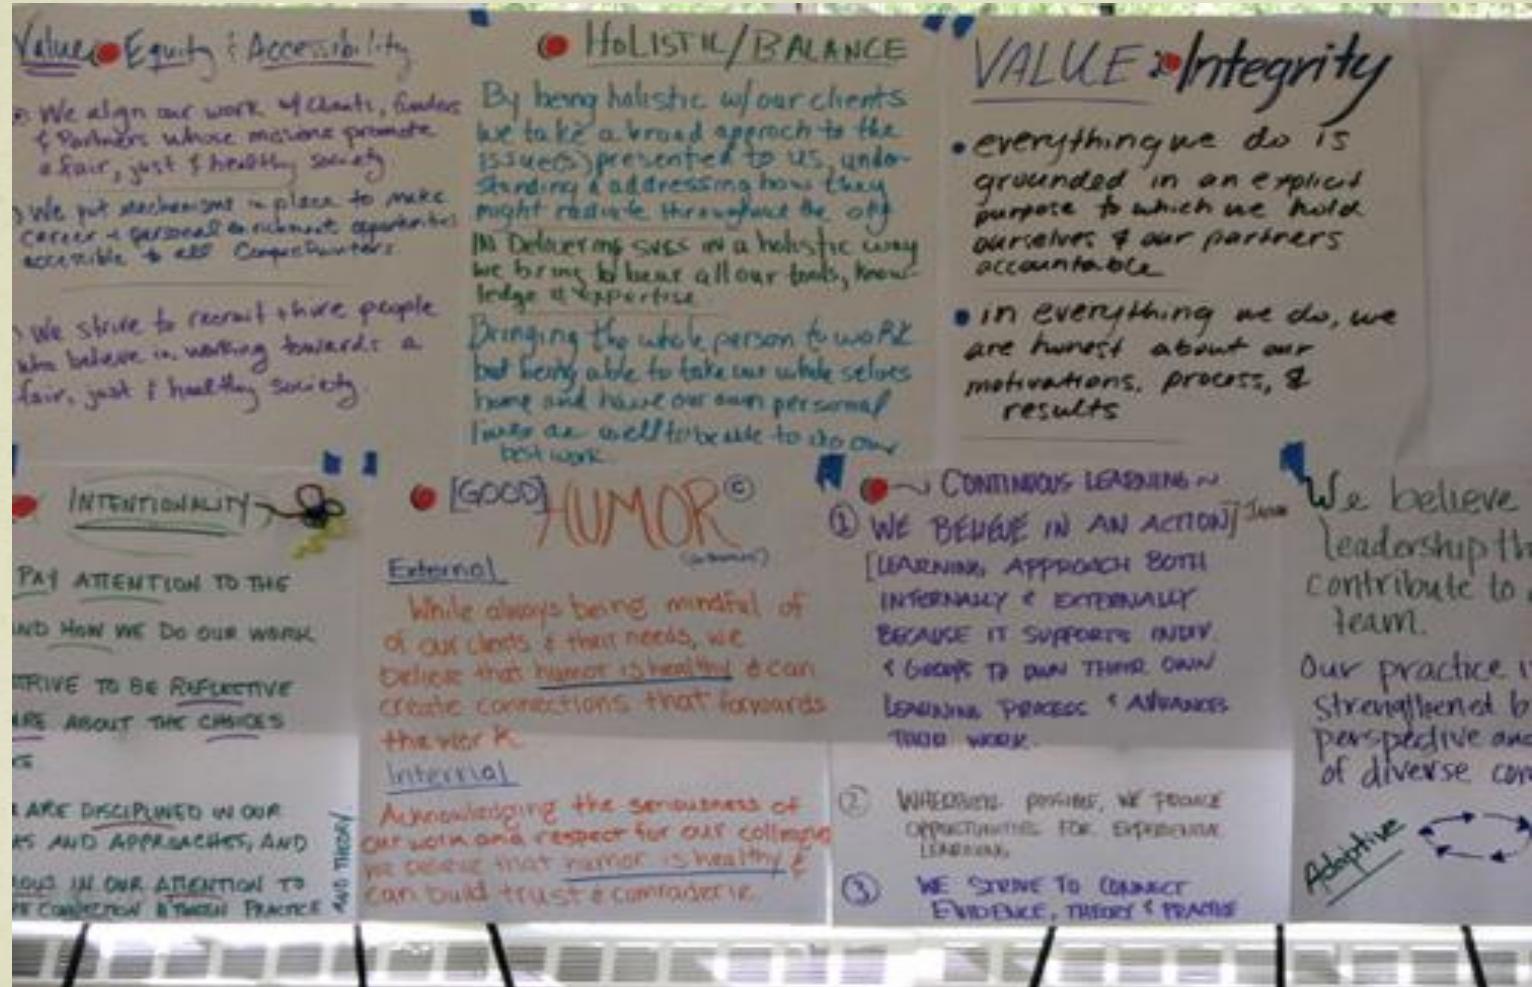 Value Equity & Accessibility
We align our work w/ clients, funders
& Partners whose missions promote
a fair, just & healthy society
We put mechanisms in place to make
career & personal enrichment opportunities
accessible to all
We strive to recruit & hire people
who believe in working towards a
fair, just & healthy society.
HOLISTIC/BALANCE
By being holistic w/our clients
we take a broad approch to the
issue(s) presented to us, under-
standing & addressing how they
might radiate throughout the org
IN Delivering svcs in a holistic way
we bring to bear all our tools, know-
ledge & expertise
Bringing the whole person to work
but being able to take our whole selves
home and have our own personal
lives as well to be able to do our
best work.
VALUE: Integrity
• everything we do is
grounded in an explicit
purpose to which we hold
ourselves & our partners
accountable
• in everything we do, we
are honest about our
motivations, process, &
results
INTENTIONALITY
PAY ATTENTION TO THE
AND HOW WE DO OUR WORK
STRIVE TO BE REFLECTIVE
ABOUT THE CHOICES
ARE DISCIPLINED IN OUR
AND APPROACHES, AND
IN OUR ATTENTION TO
CONNECTION BETWEEN PRACTICE
AND THEORY
[GOOD] HUMOR ©
External
While always being mindful of
of our clients & their needs, we
believe that humor is healthy & can
create connections that forwards
the work.
Internal
Acknowledging the seriousness of
our work and respect for our colleagues
we believe that humor is healthy &
can build trust & comraderie.
~ CONTINUOUS LEARNING ~
① WE BELIEVE IN AN ACTION
[LEARNING APPROACH BOTH
INTERNALLY & EXTERNALLY
BECAUSE IT SUPPORTS INDIV.
& GROUPS TO OWN THEIR OWN
LEARNING PROCESS & ADVANCES
THEIR WORK.
② WHEREVER POSSIBLE, WE PROVIDE
OPPORTUNITIES FOR EXPERIENTIAL
LEARNING.
③ WE STRIVE TO CONNECT
EVIDENCE, THEORY & PRACTICE
We believe
leadership
contribute to
team.
Our practice
strengthened
perspective and
of diverse
Adaptive